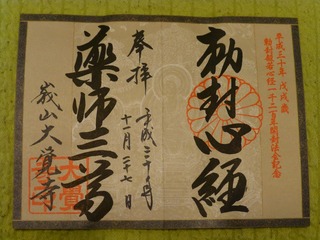 平成三十年 戊戌歳
勅封般若心経一千二百年開封法会記念
勅封心経
奉拝
平成三十年
十一月二十七日
薬師三尊
嵯峨山大覚寺